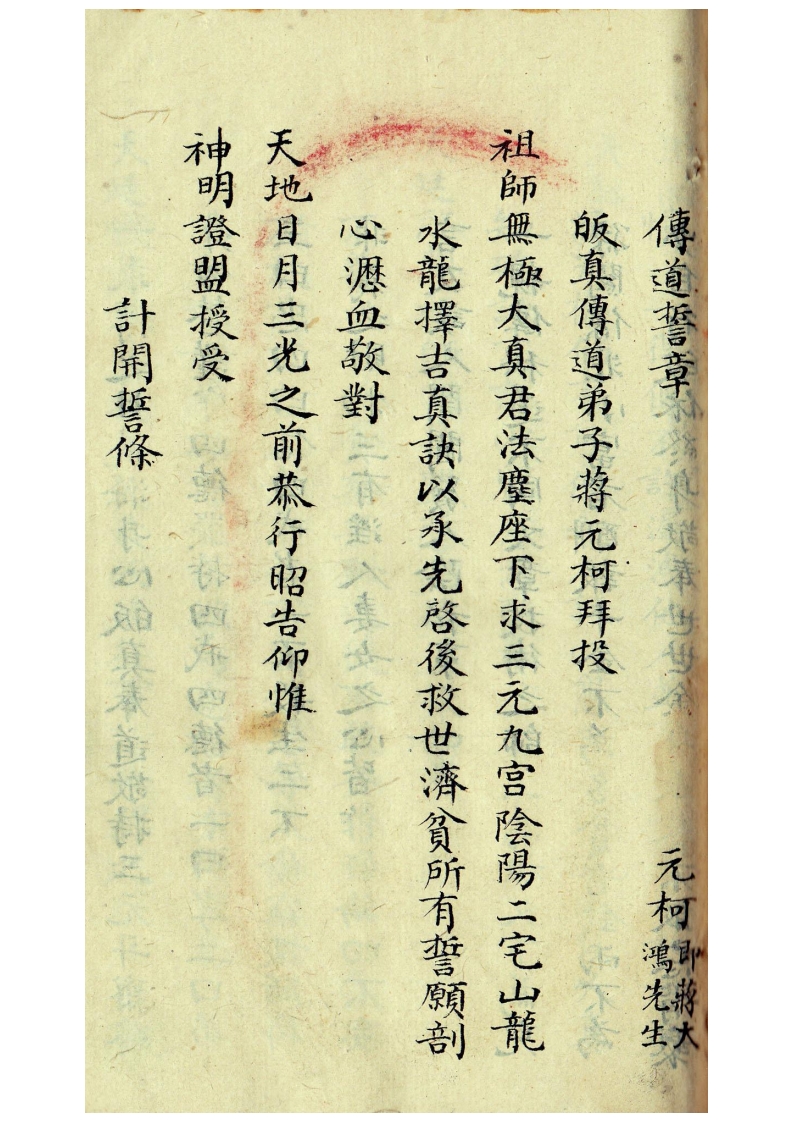 傳道誓章　元柯即蔣大鴻先生
皈真傳道弟子蔣元柯拜投
祖師無極大真君法座下求三元九宮陰陽二宅山龍
水龍擇吉真訣以承先啓後救世濟貧所有誓願剖
心瀝血敬對
天地日月三光之前恭行昭告仰惟
神明證盟授受
計開誓條